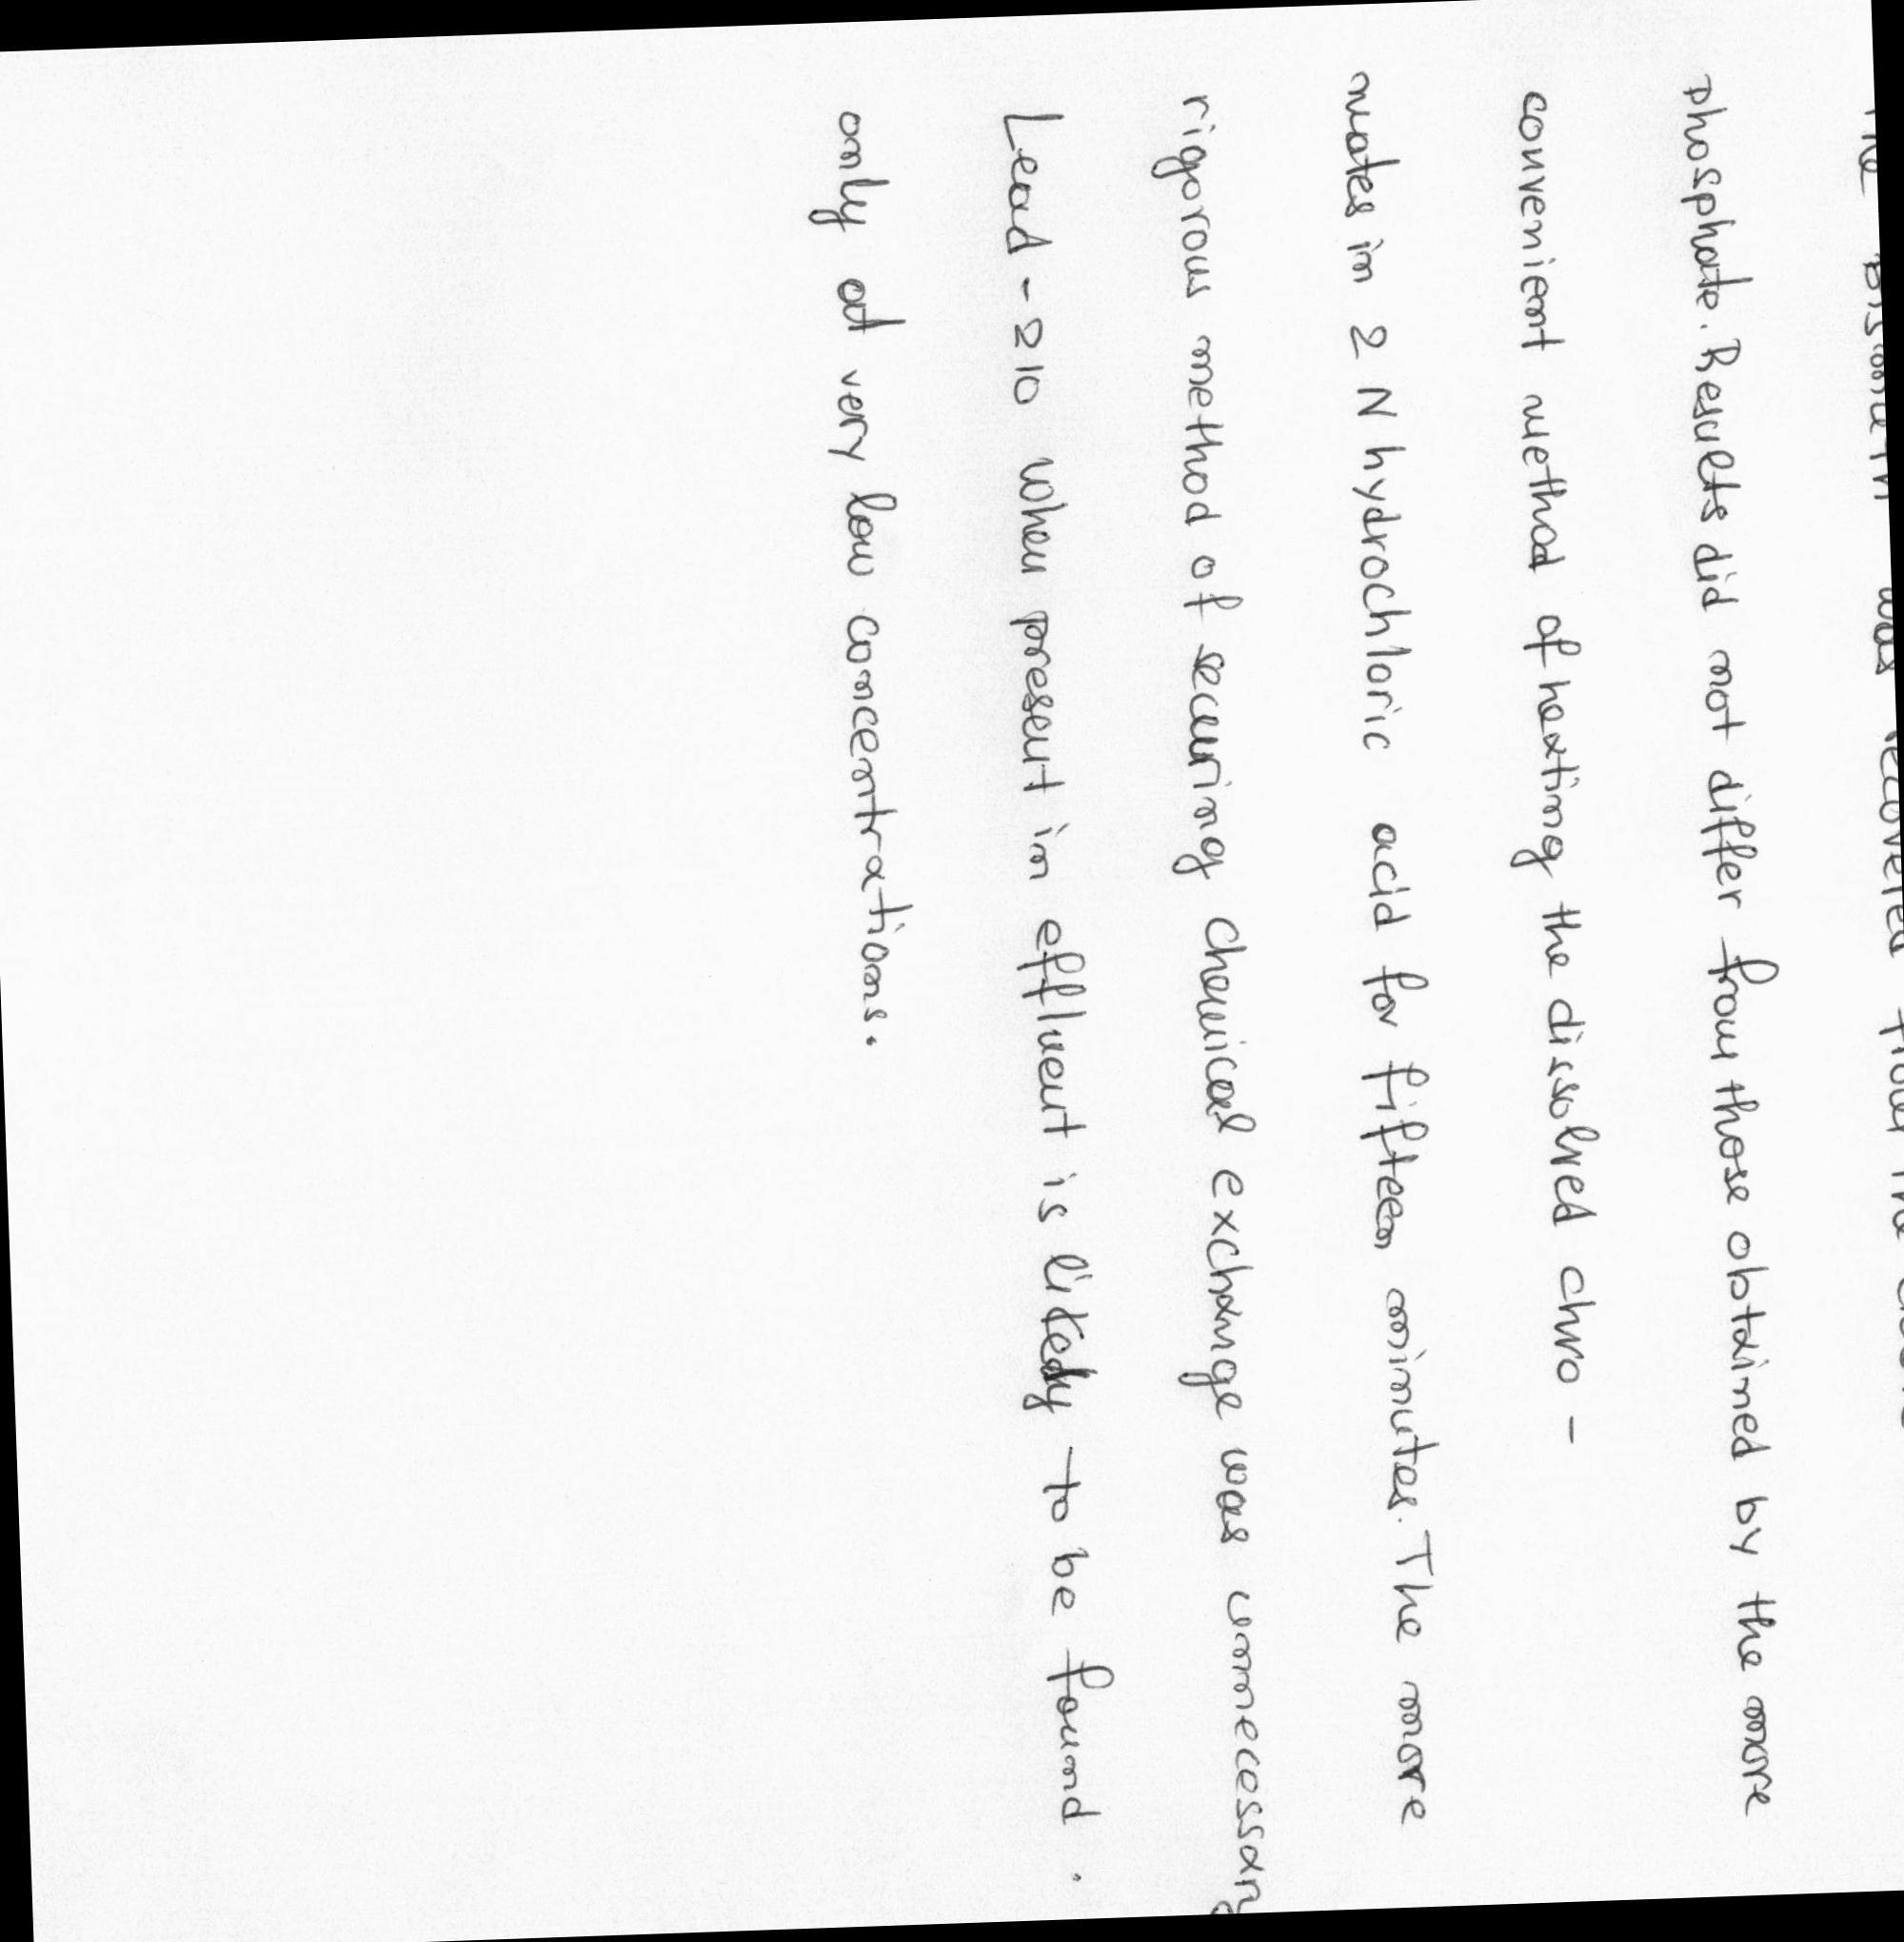 the Bismuth was recovered from the
phosphate. Results did not differ from those obtained by the more
convenient method of heating the dissolved chro-
mates in 2 N hydrochloric acid for fifteen minutes. The more
rigorous method of securing chemical exchange was unnecessary
Lead-210 when present in effluent is likely to be found.
only at very low concentrations.